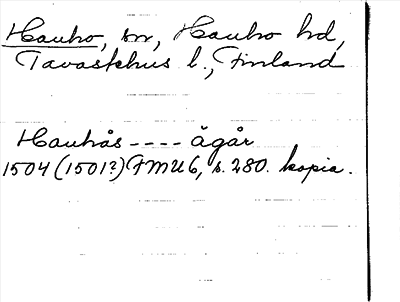 Hauho, sn, Hauho hd,
Tavastehus l., Finland
Hauhås ---- ägår
1504 (1501?) FMU 6, s. 280. kopia.